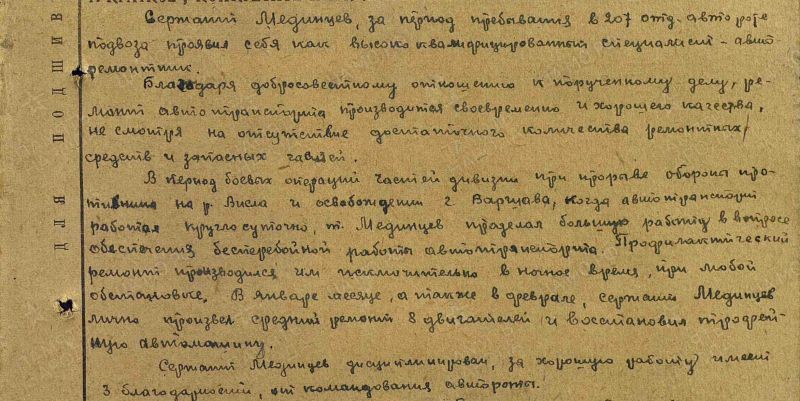 Сержант Мединцев, за период пребывания в 207 отд. авто роте
подвоза проявил себя как высоко квалифицированный специалист - авто-
ремонтник.
Благодаря добросовестному отношению к порученному делу, ре-
монт автотранспорта производится своевременно и хорошего качества,
не смотря на отсутствие достаточного количества ремонтных
средств и запасных частей.
В период боевых операций частей дивизии при прорыве обороны про-
тивника на р. Висла и освобождении г. Варшава, когда автотранспорт
работал круглосуточно, т. Мединцев проделал большую работу в вопросе
обеспечения бесперебойной работы автотранспорта. Профилактический
ремонт производился им исключительно в ночное время, при любой
обстановке. В январе месяце, а также в феврале, сержант Мединцев
лично произвел средний ремонт 8 двигателей и восстановил трофей-
ную автомашину.
Сержант Мединцев дисциплинирован, за хорошую работу имеет
3 благодарности, от командования автороты.
ДЛЯ ПОДШИВ